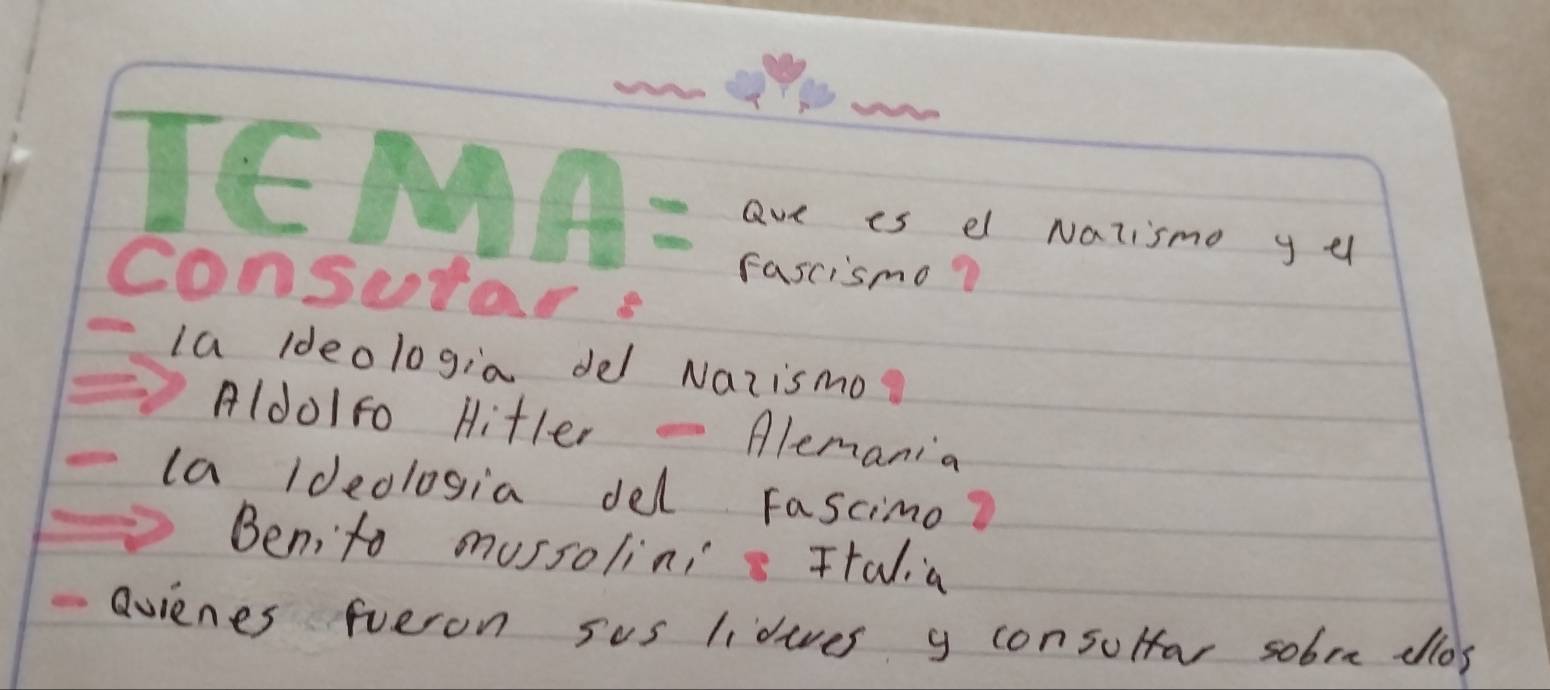 TEMA= Que es el Nazismo y el
Fascismo?
Consutar:
- la ideologia del Nazismo?
⇒ Aldolfo Hitler - Alemania
- la ideologia del Fascimo?
⇒ Benito mussolini : Italia
- Quienes fueron sus lideres y consultar sobre ellos